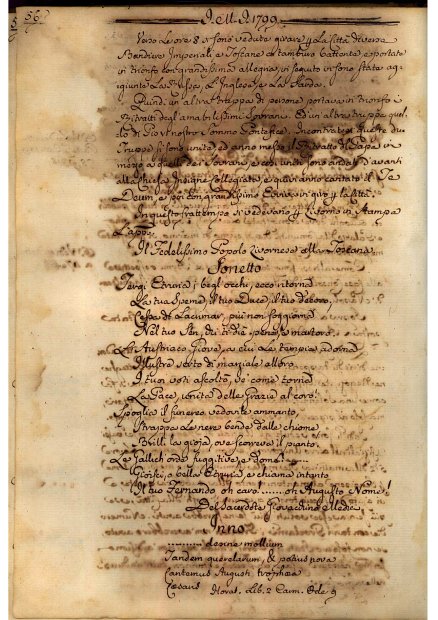 56
A. M. D. 1799.
Verso le ore 8 si sono vedute girare p la Città diverse
Bandiere Imperiali e Toscane a tamburo battente, e portate
in trionfo con grandissima allegria, in seguito vi sono state ag-
giunte la Russa, l'Inglese, e la Sarda.
Quindi un altra truppa di persone portava in trionfo i
Ritratti degl'amabilissimi Sovrani. Ed un altra truppa quel-
lo di Giov Nostro Sommo Pontefice. Incontratesi queste due
Truppe si sono unite, ed anno messo il Ritratto del Papa in
mezzo a quelli dei Sovrani, e così unite sono andate davanti
alla Chiesa Insigne Collegiata, e quivi anno cantato il Te
Deum, e poi con grandissimo Evviva in giro p la Città.
In questo frattempo si vedevano p Livorno in Stampa
L'app
Il Fedelissimo Popolo Livornese alla Toscana
Sonetto
Tergi Etruria i begl'occhi, ecco ritorna
La tua Speme, il tuo Duce, il tuo decoro,
Cessa di lacrimar, più non soggiorna
Nel tuo Sen, dei tridie spene, e martoro.
L'Austriaco Giove, a cui le tempie adorna
Illustre serto di marziale alloro,
I tuoi voti ascoltò, de come torna
La Pace, unita delle Grazie al coro!
Spoglia il funereo vedovile ammanto,
Strappa le nere bende dalle chiome
Brilli la gioja, ove scorreva il pianto.
Le Galliche orde fuggitive, e dome!
Gioisci, o bella Etruria, e chiama intanto
Il tuo Fernando oh caro!....... oh Augusto Nome!
Del Sacerdote Giovacchino Medici
Inno
.......... desine mollium
Tandem querelarum, & potius nova
Cantemus Augusti trophæa
Cæsaris
Horat. Lib. 2 Carm. Ode 9